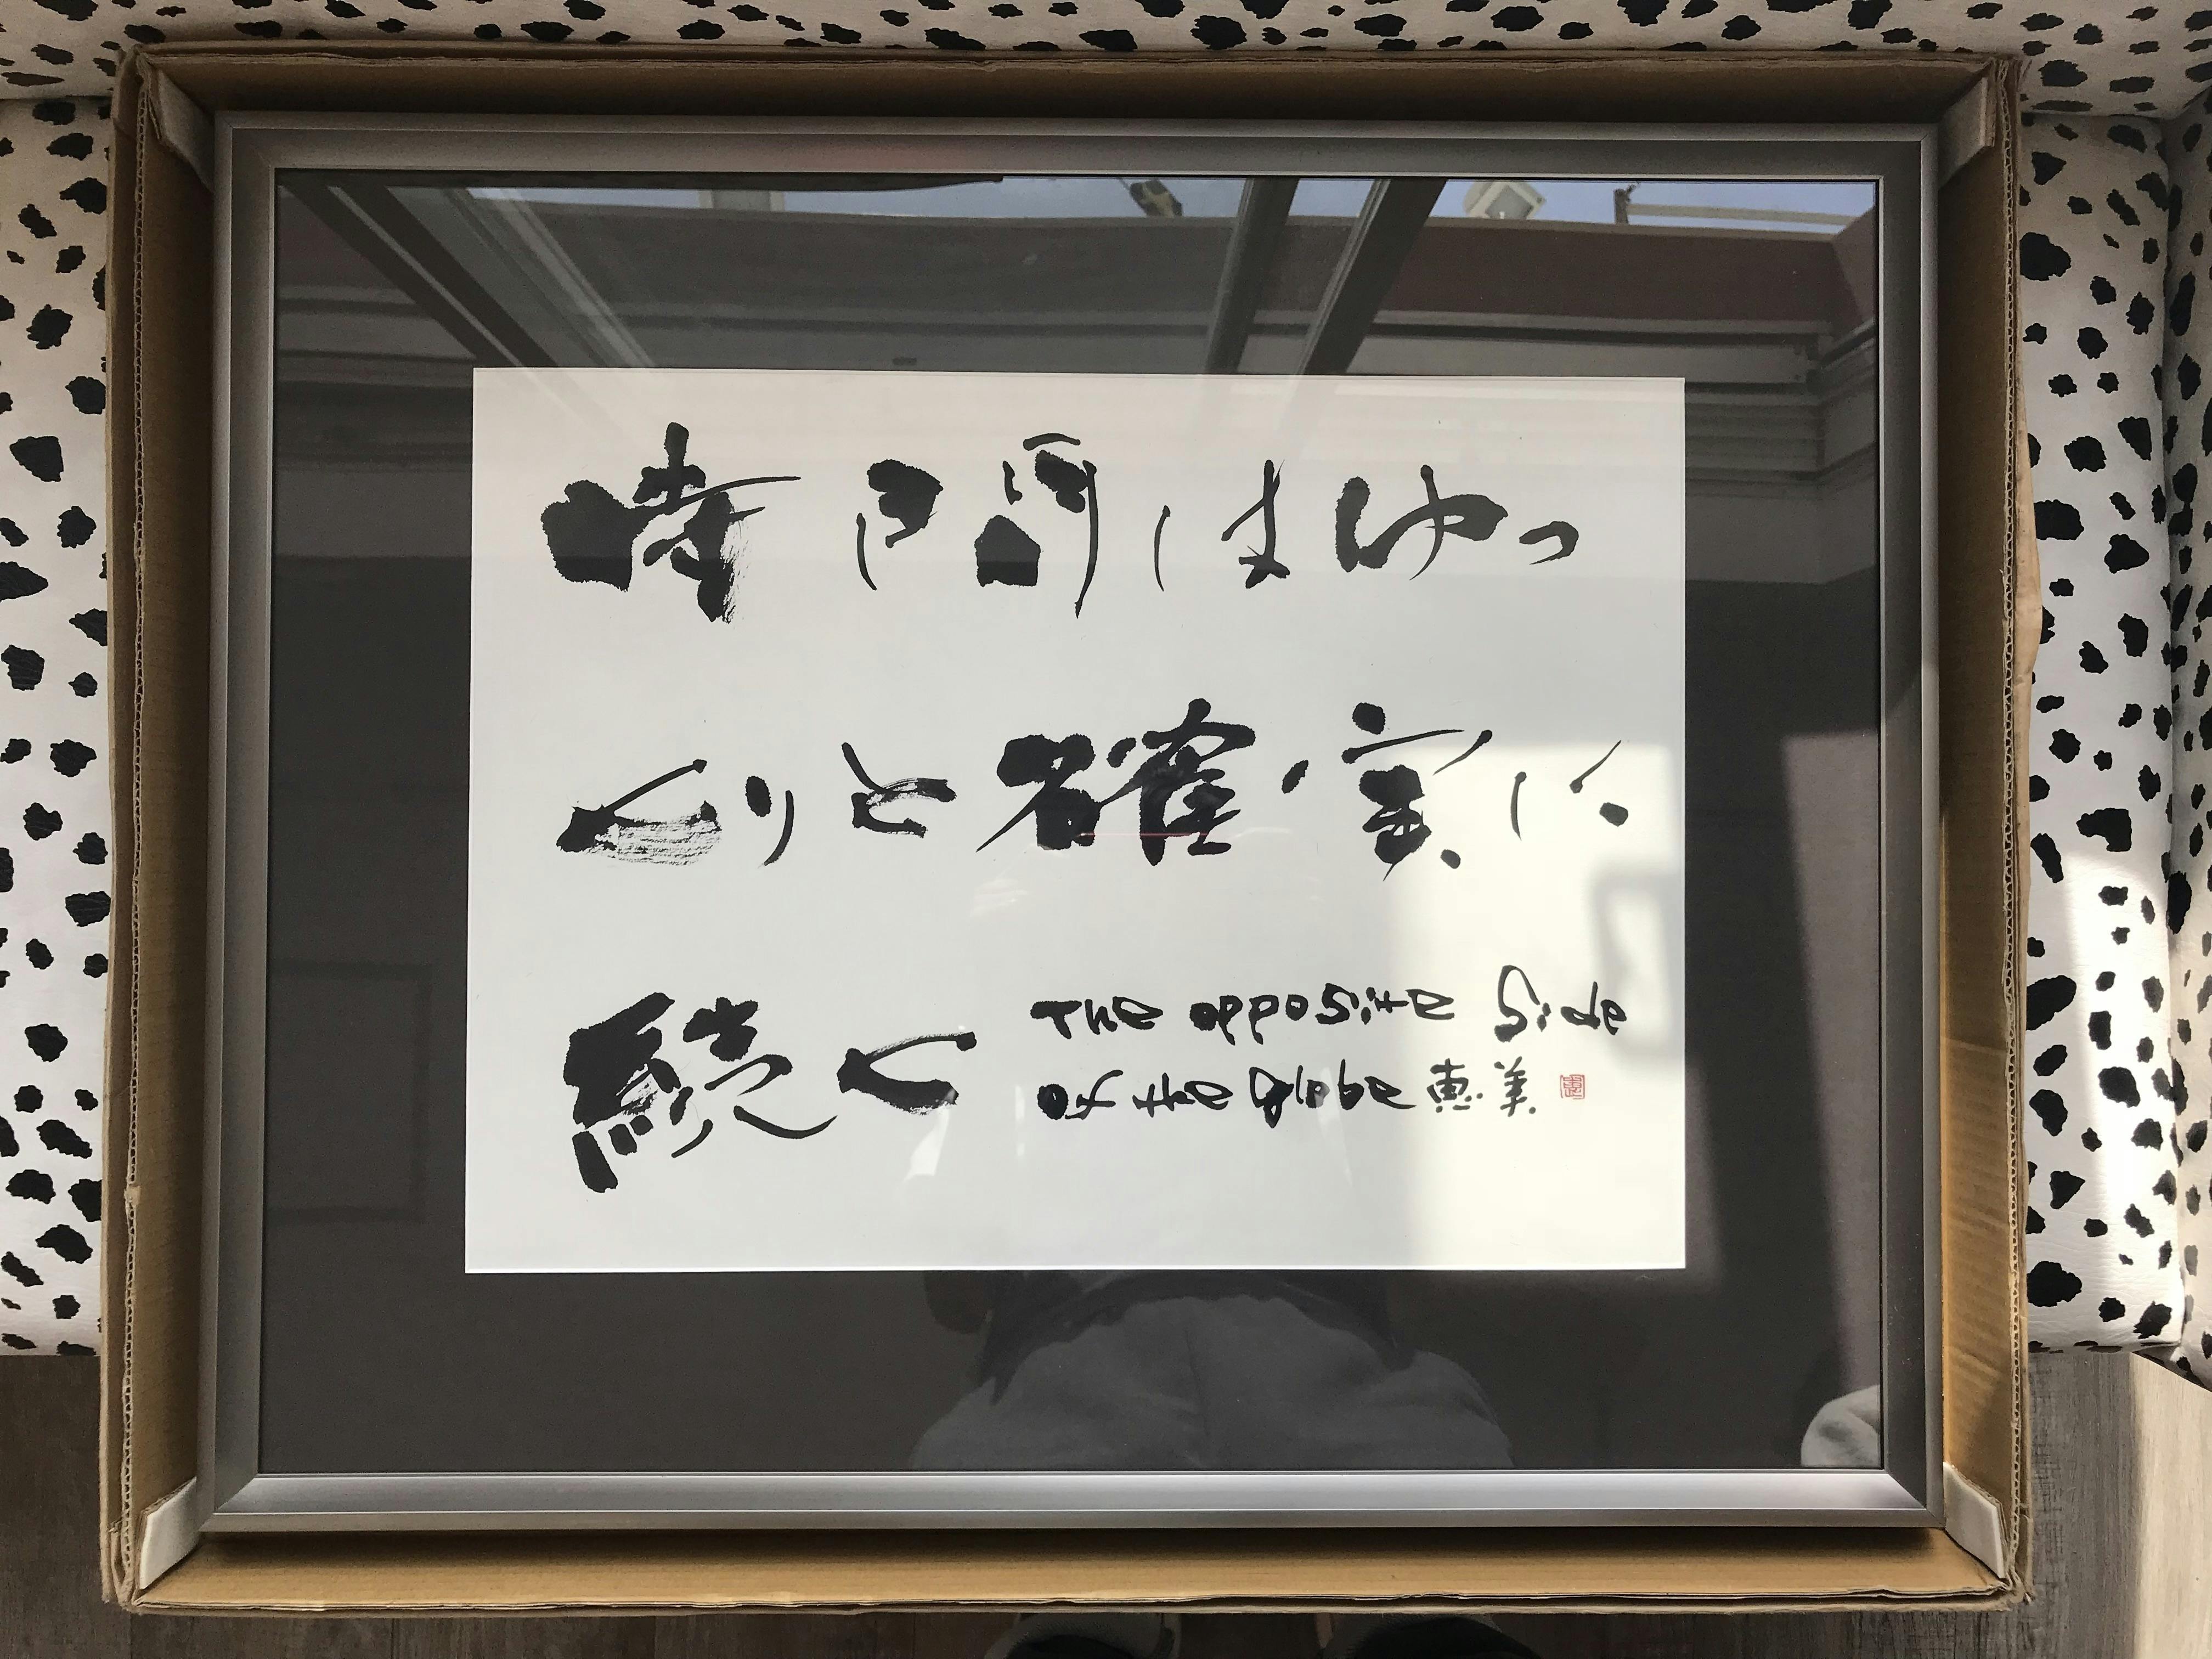 時間はゆっ
くりと確実に
続く
The opposite Side
of the globe 恵美